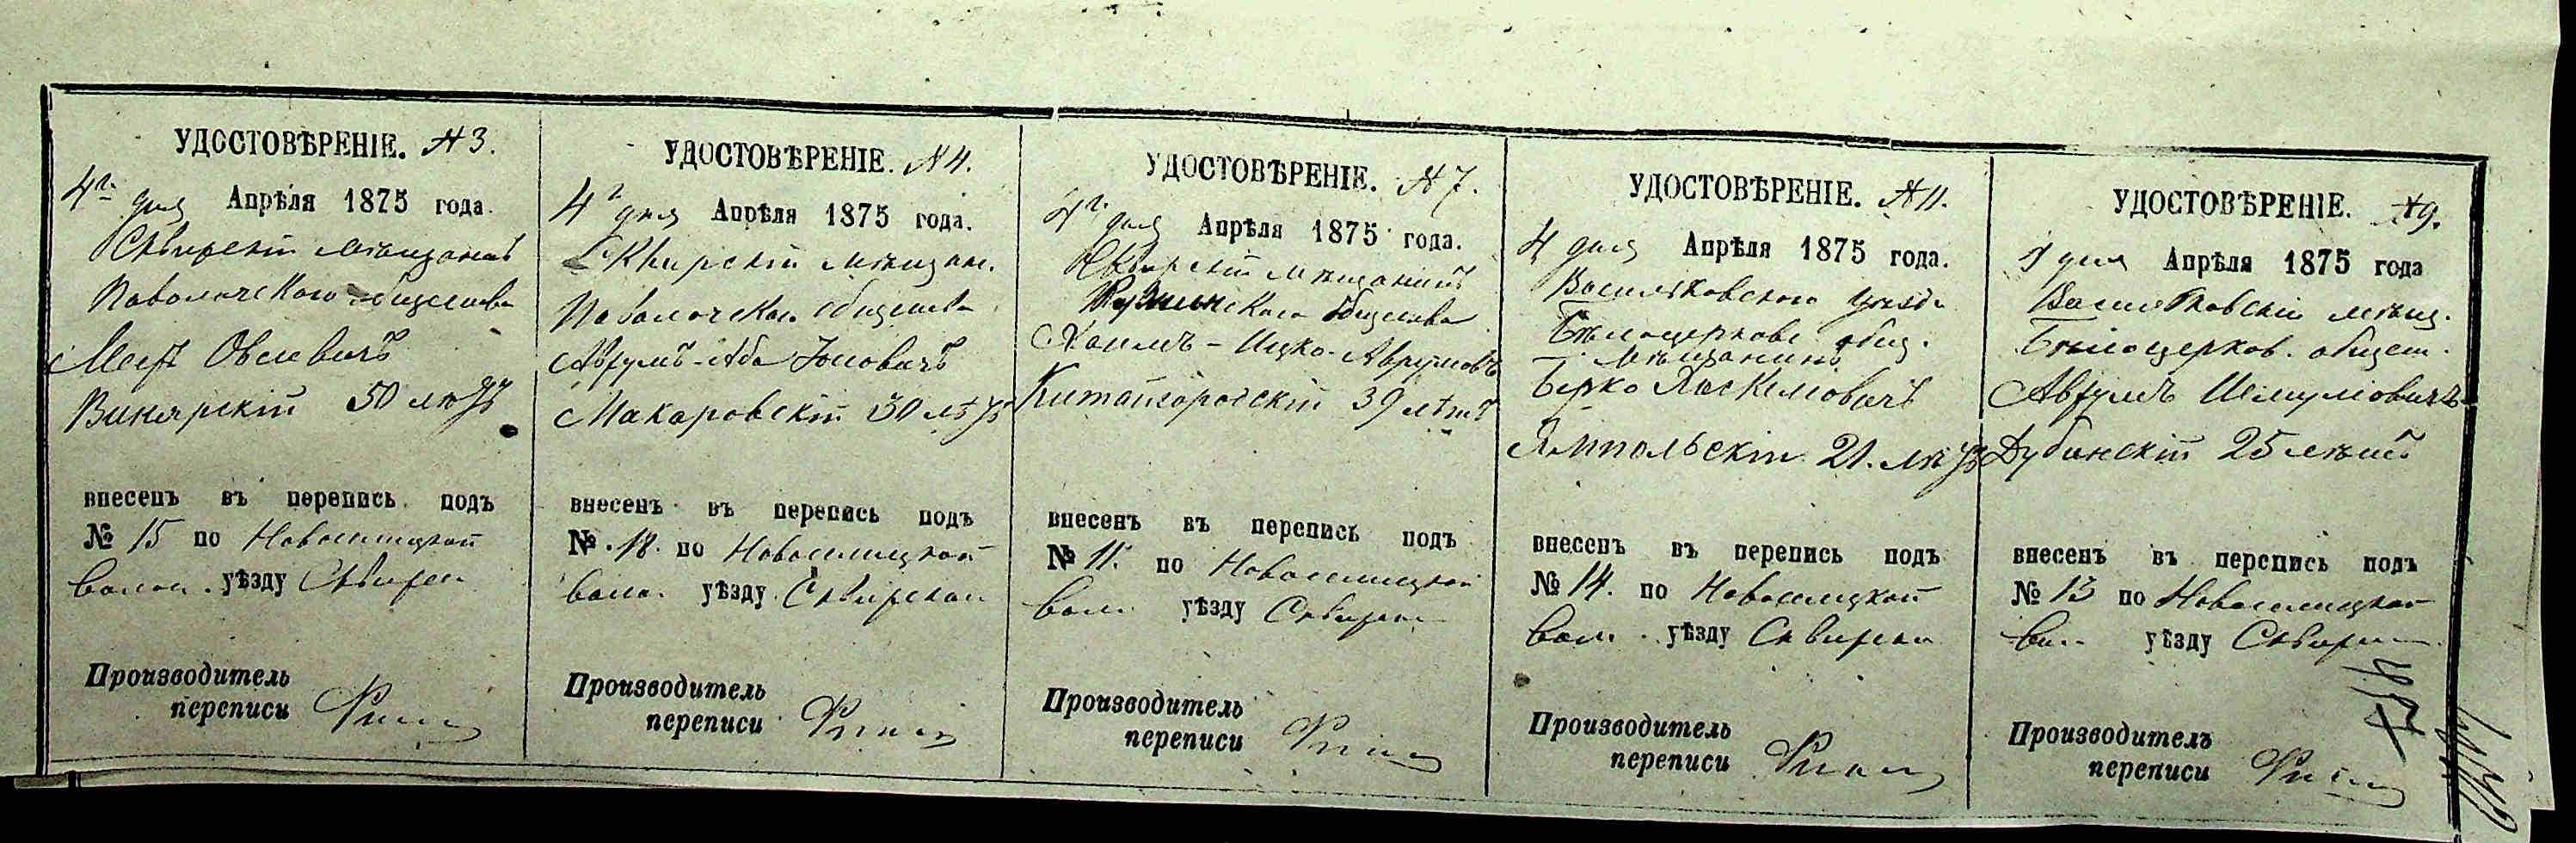 УДОСТОВѢРЕНІЕ. № 3.
4го дня Апрѣля 1875 года.
Сквирскій мѣщанинъ
Паволочскаго общества
Мееръ Овсеевичъ
Винярскій 50 лѣтъ
внесенъ въ перепись подъ
№ 15 по Новоселицкой
Волос. уѣзду Сквирск
Производитель
переписи
УДОСТОВѢРЕНІЕ. № 4.
4го дня Апрѣля 1875 года.
Сквирскій мѣщан.
Паволочскаго общества
Аврумъ-Аба Іосовичъ
Макаровскій 30 лѣтъ
внесенъ въ перепись подъ
№ 18. по Новоселицкой
Волос. уѣзду Сквирском
Производитель
переписи
УДОСТОВѢРЕНІЕ. № 7.
4го дня Апрѣля 1875 года.
Сквирскій мѣщанинъ
Ружинскаго общества
Хаимъ-Ицко-Аврумовъ
Китайгородскій 39 лѣтъ
внесенъ въ перепись подъ
№ 11. по Новоселицкой
Воло. уѣзду Сквирск
Производитель
переписи
УДОСТОВѢРЕНІЕ. № 11.
4 дня Апрѣля 1875 года.
Васильковскаго уѣзда
Бѣлоцерковс. общ.
мѣщанинъ
Берко Хаскелевичъ
Ямпольскій 21. лѣтъ
внесенъ въ перепись подъ
№ 14. по Новоселицкой
Воло. уѣзду Сквирск
Производитель
переписи
УДОСТОВѢРЕНІЕ. № 9.
4 дня Апрѣля 1875 года
Васильковскій мѣщ.
Бѣлоцерков. общест.
Аврумъ Шмулiовичъ
Дубинскій 25 лѣтъ
внесенъ въ перепись подъ
№ 13 по Новоселицкой
Вол. уѣзду Сквирск
Производитель
переписи